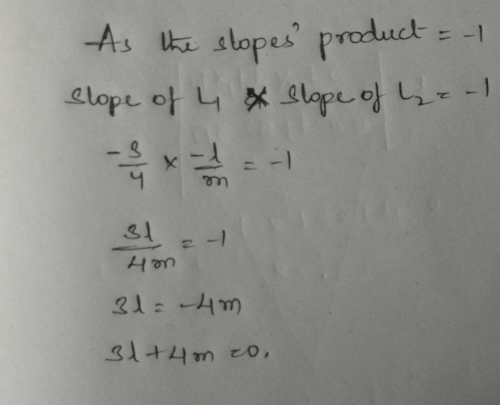 As the slopes' product = -1
slope of L1 × slope of L2 = -1
-3/4 × -l/m = -1
3l/4m = -1
3l = -4m
3l + 4m = 0.